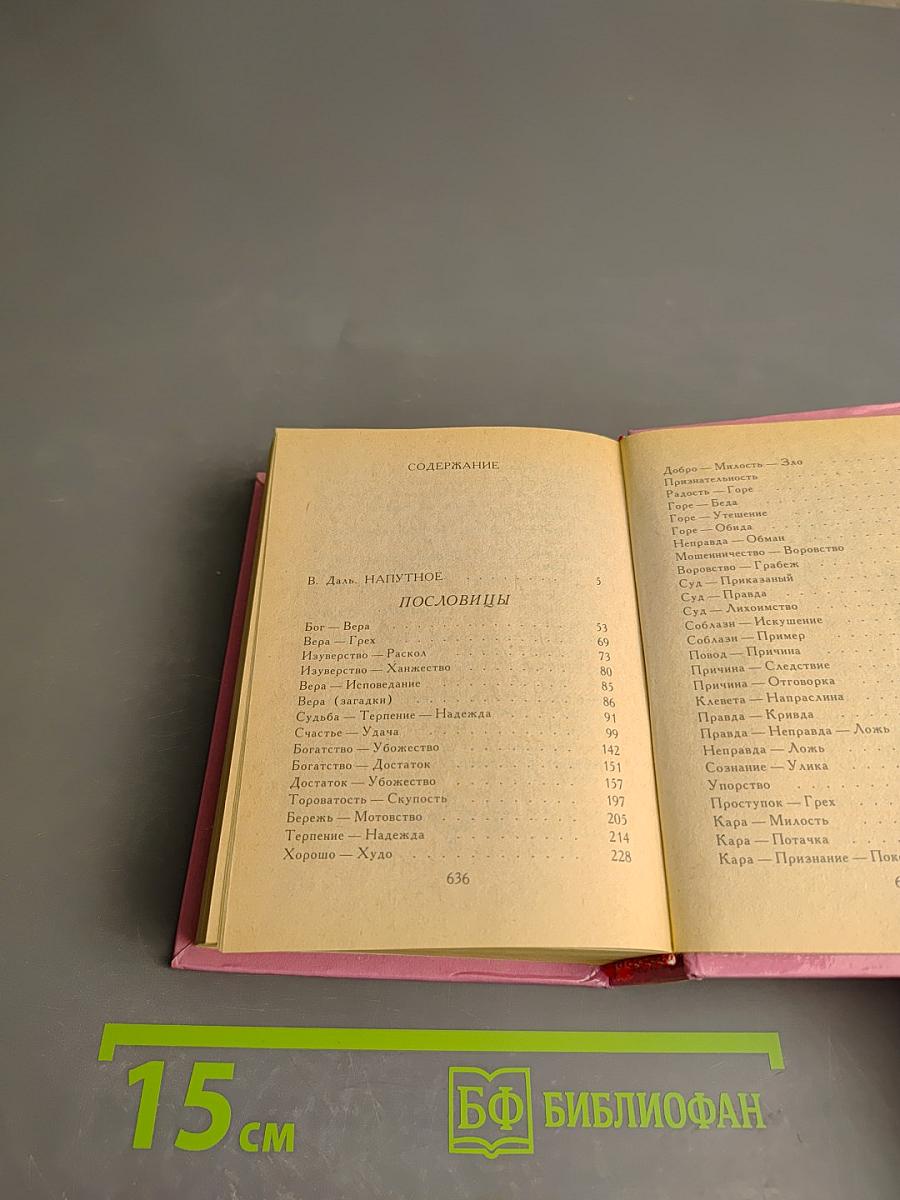 СОДЕРЖАНИЕ
В. Даль. НАПУТНОЕ . . . . . . . . . . 5
ПОСЛОВИЦЫ
Бог — Вера . . . . . . . . . . 53
Вера — Грех . . . . . . . . . . 69
Изуверство — Раскол . . . . . . . . . . 73
Изуверство — Ханжество . . . . . . . . . . 80
Вера — Исповедание . . . . . . . . . . 85
Вера (загадки) . . . . . . . . . . 86
Судьба — Терпение — Надежда . . . . . . 91
Счастье — Удача . . . . . . . . . . 99
Богатство — Убожество . . . . . . . . . . 142
Богатство — Достаток . . . . . . . . . . 151
Достаток — Убожество . . . . . . . . . . 157
Тороватость — Скупость . . . . . . . . . . 197
Бережь — Мотовство . . . . . . . . . . 205
Терпение — Надежда . . . . . . . . . . 214
Хорошо — Худо . . . . . . . . . . 228
636
Добро — Милость — Зло
Признательность
Радость — Горе
Горе — Беда
Горе — Утешение
Горе — Обида
Неправда — Обман
Мошенничество — Воровство
Воровство — Грабеж
Суд — Приказаный
Суд — Правда
Суд — Лихоимство
Соблазн — Искушение
Соблазн — Пример
Повод — Причина
Причина — Следствие
Причина — Отговорка
Клевета — Напраслина
Правда — Кривда
Правда — Неправда — Ложь
Неправда — Ложь
Сознание — Улика
Упорство
Проступок — Грех
Кара — Милость
Кара — Потачка
Кара — Признание —
15 см
БФ БИБЛИОФАН